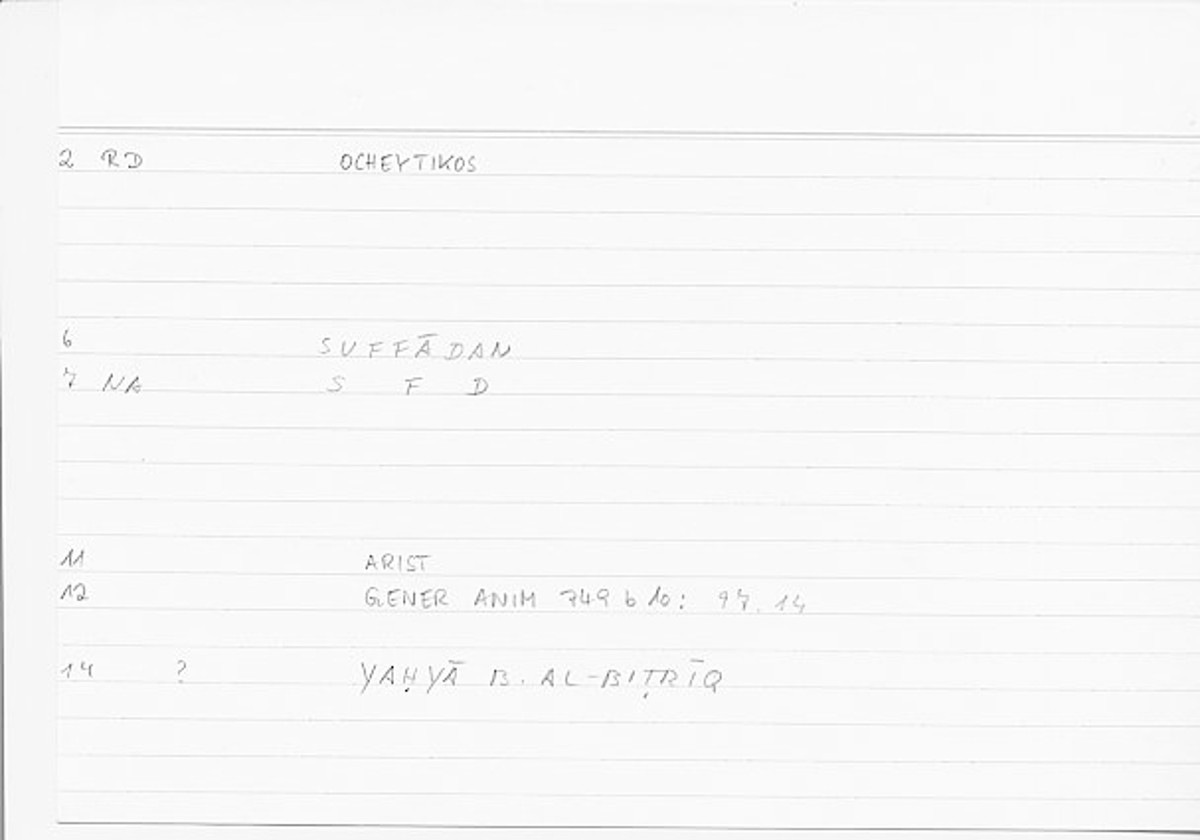 2 RD OCHEYTIKOS
6 SUFFĀDAN
7 NA S F D
11 ARIST
12 GENER ANIM 749 b 10: 97.14
14 ? YAḤYĀ B. AL-BIṬRĪQ